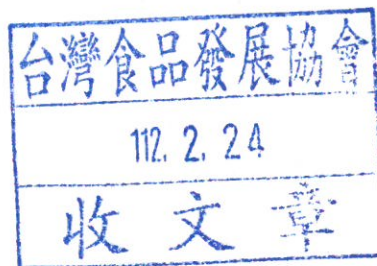 台灣食品發展協會
112. 2. 24
收文章